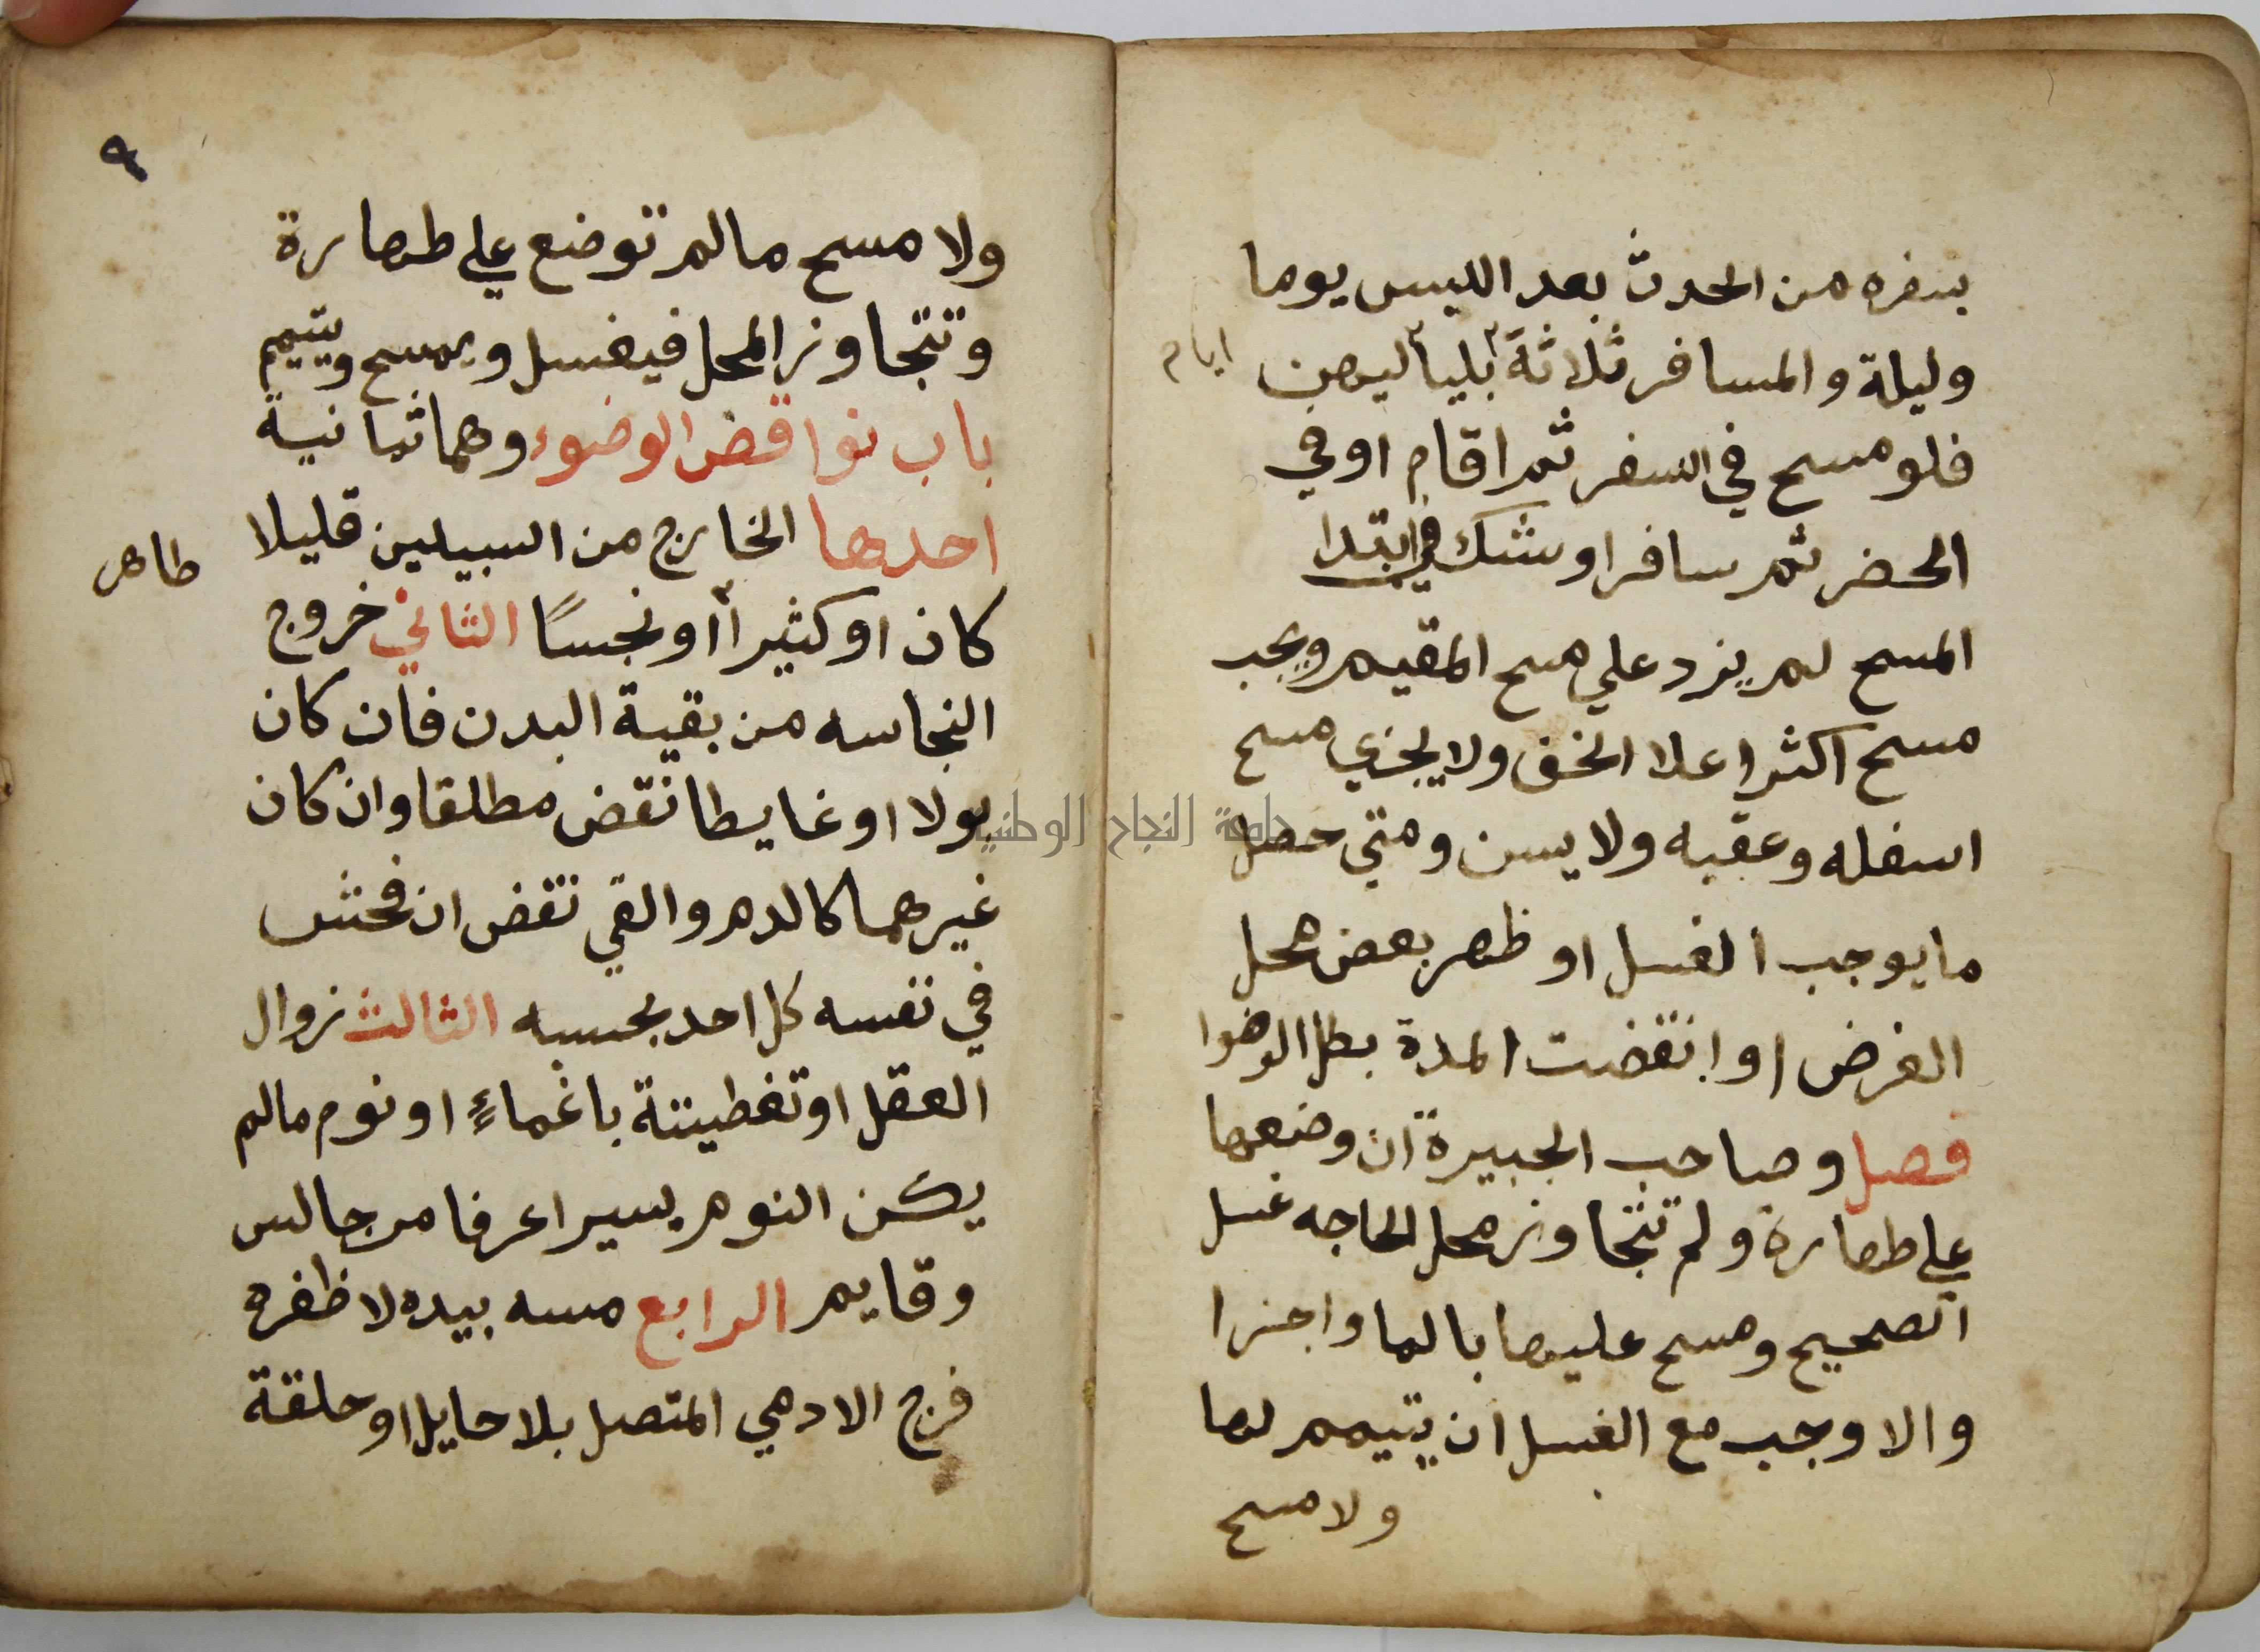 بسفره من الحدث بعد اللبس يوما
وليلة والمسافر ثلاثة بلياليهن
ايام
فلو مسح في السفر ثم اقام او في
الحضر ثم سافر او شك في ابتدا
المسح لم يزد علي مسح المقيم ويجب
مسح اكثر اعلا الخف ولا يجزي مسح
اسفله وعقبه ولا يسن ومتي حصل
ما يوجب الغسل او ظهر بعض محل
الفرض او انقضت المدة بطل الوضوا
فصل وصاحب الجبيرة ان وضعها
علي طهارة ولم تتجاوز محل الحاجه غسل
الصحيح ومسح عليها بالما واجزا
والا وجب مع الغسل ان يتيمم لها
ولا مسح
٩
ولا مسح مالم توضع علي طهارة
وتتجاوز المحل فيغسل ويمسح ويتيمم
باب نواقض الوضوء وهما ثمانية
احدها الخارج من السبيلين قليلا
كان او كثيرا او نجسًا الثاني خروج
طاهر
النجاسه من بقية البدن فان كان
بولا او غايطا نقض مطلقا وان كان
غيرهما كالدم والقي نقض ان فحش
في نفسه كل احد بحسبه الثالث زوال
العقل او تغطيتة باغماءٍ او نوم مالم
يكن النوم يسيرا عرفا من جالس
وقايم الرابع مسه بيده لا ظفره
فرج الادمي المتصل بلا حايل او حلقة
جامعة النجاح الوطنية